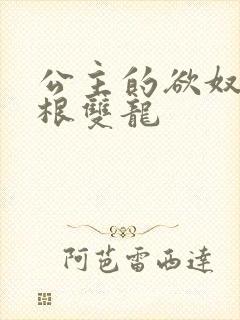 公主的欲奴
根雙龍
阿芭雷西達